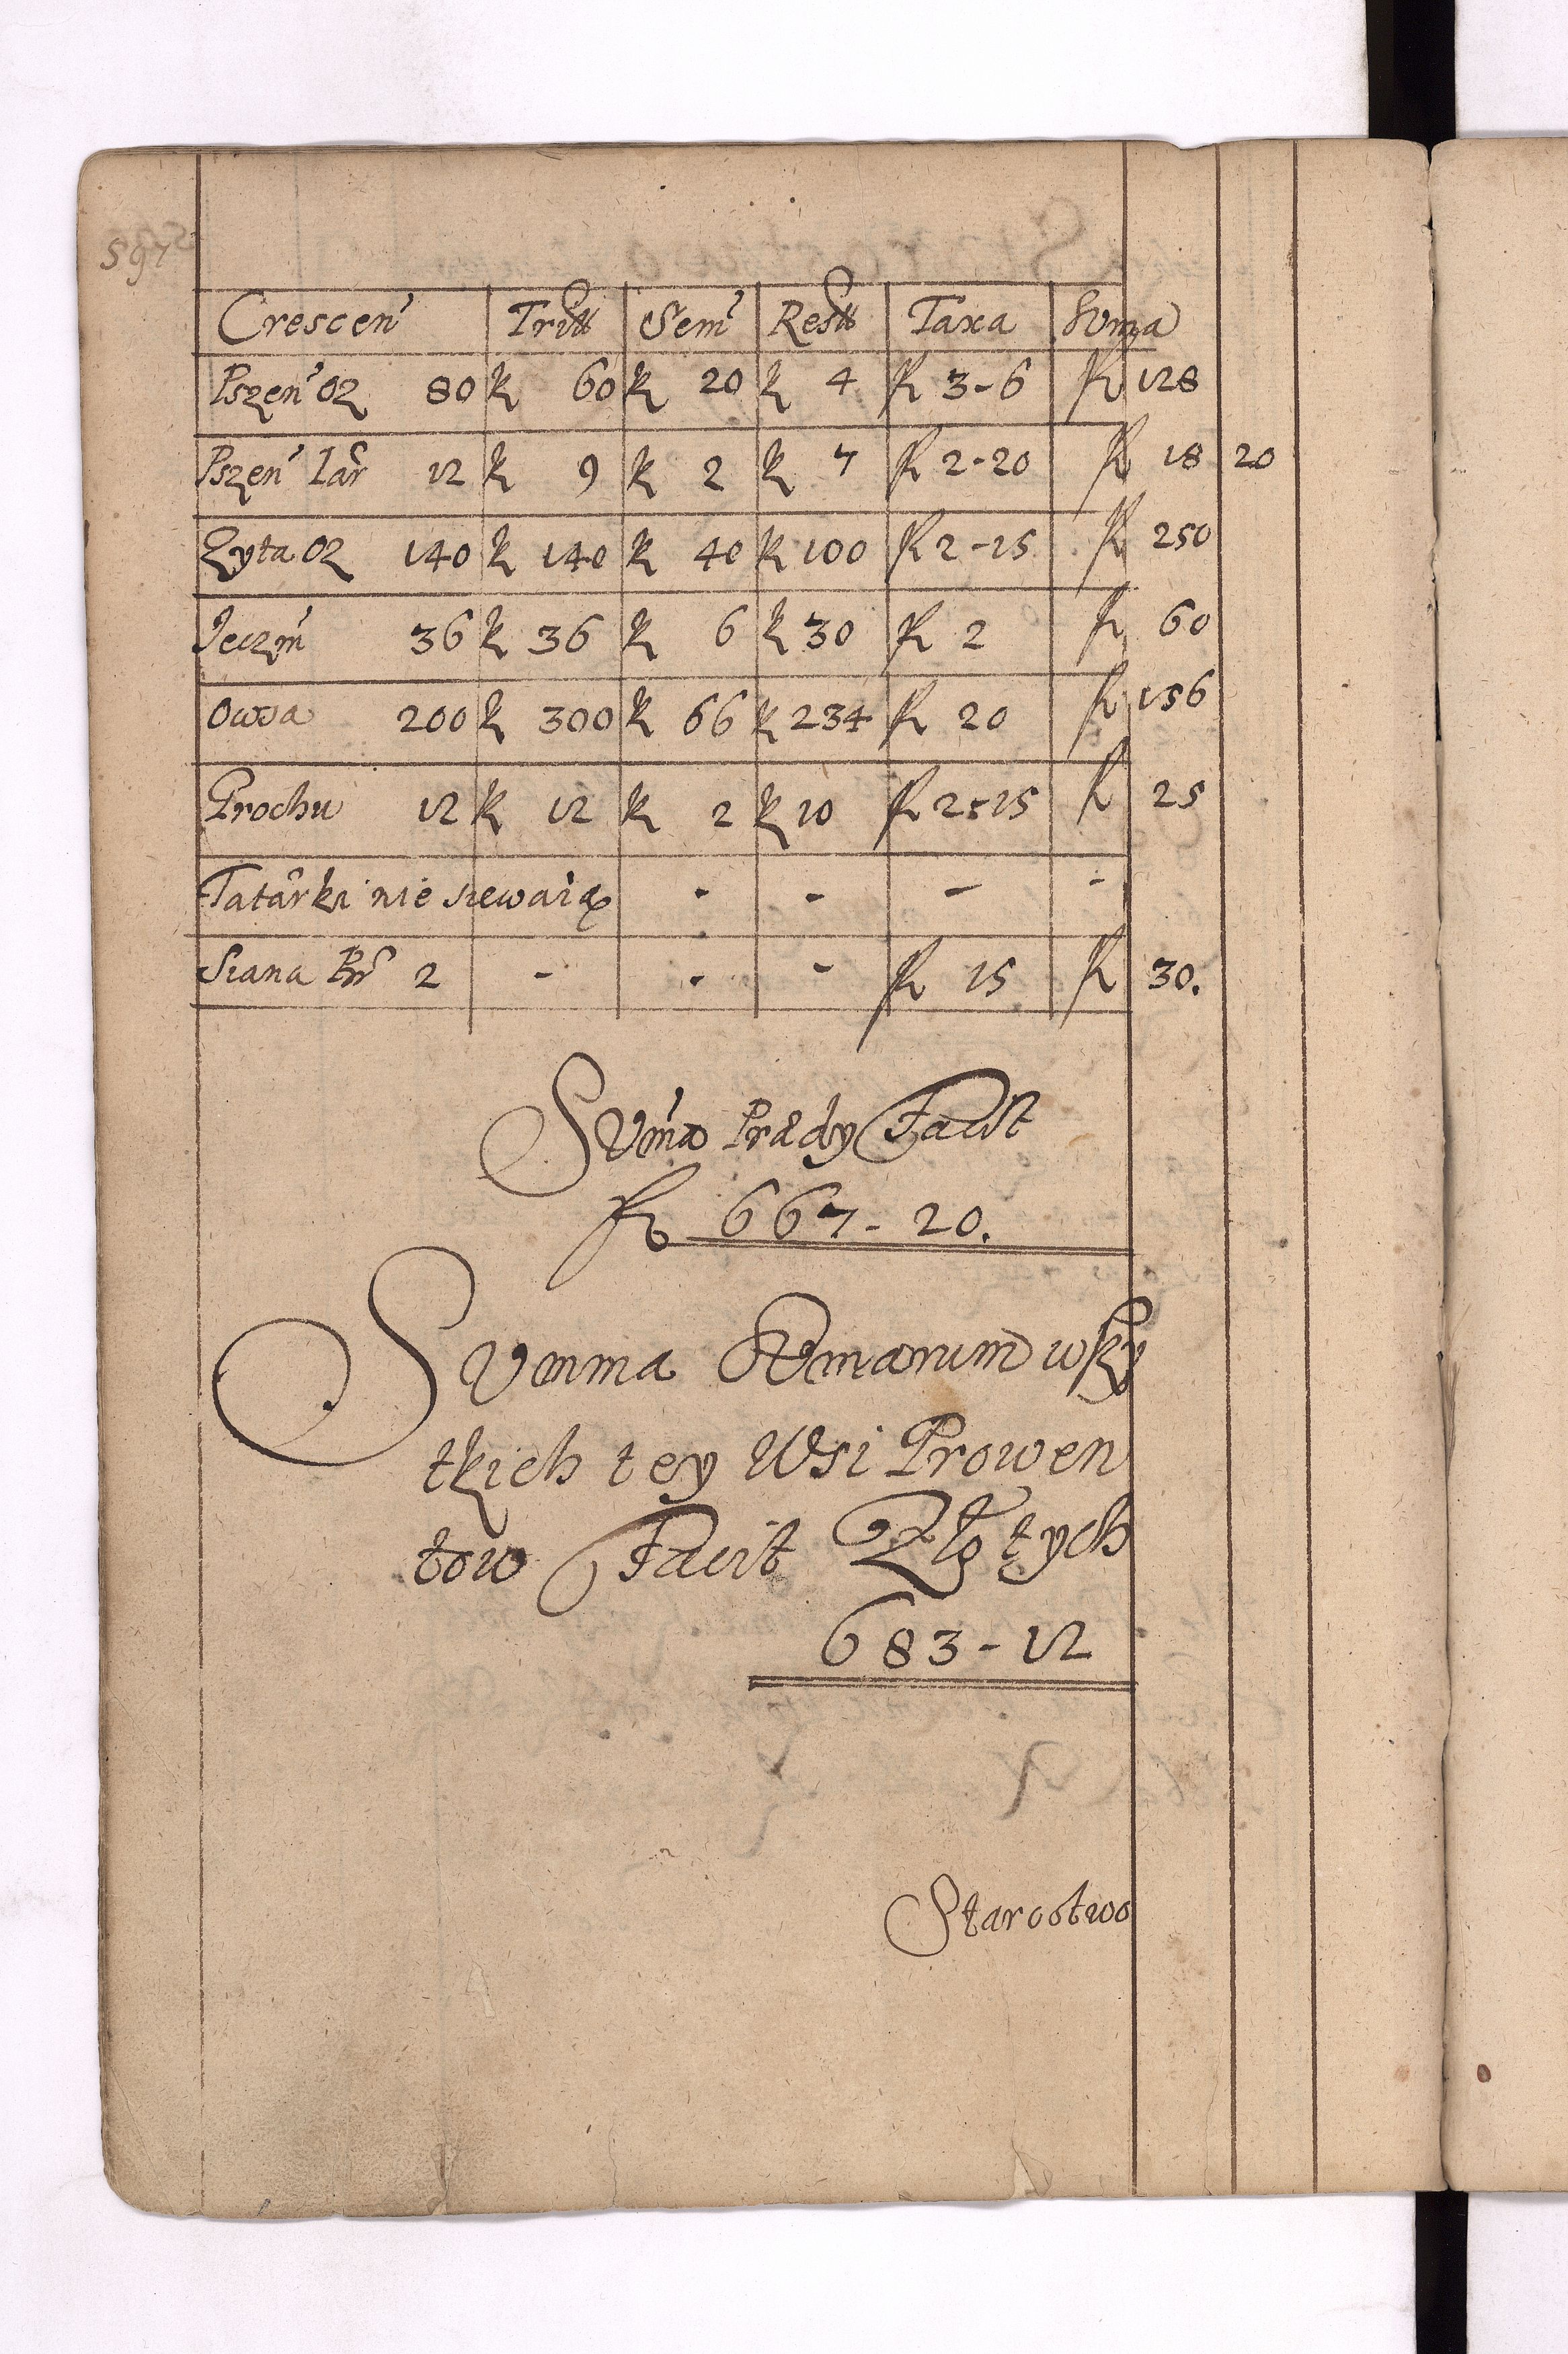 597
Crescen Tritt Sem Restt Taxa Suma
Pszen Oz 80 k 60 k 20 k 4 fl 3-6 fl 128
Pszen Iar 12 k 9 k 2 k 7 fl 2-20 fl 18 20
Zyta Oz 140 k 140 k 40 k 100 fl 2-15 fl 250
Ieczm 36 k 36 k 6 k 30 fl 2 fl 60
Owsa 200 k 300 k 66 k 234 fl 20 fl 156
Grochu 12 k 12 k 2 k 10 fl 2-15 fl 25
Tatarki nie siewaią - - - -
Siana Br 2 - - - fl 15 fl 30.
Suma Prædy Facit
fl 667-20.
Summa Sumarum wszy
tkich tey Wsi Prowen
tow Facit Złotych
683-12
Starostwo